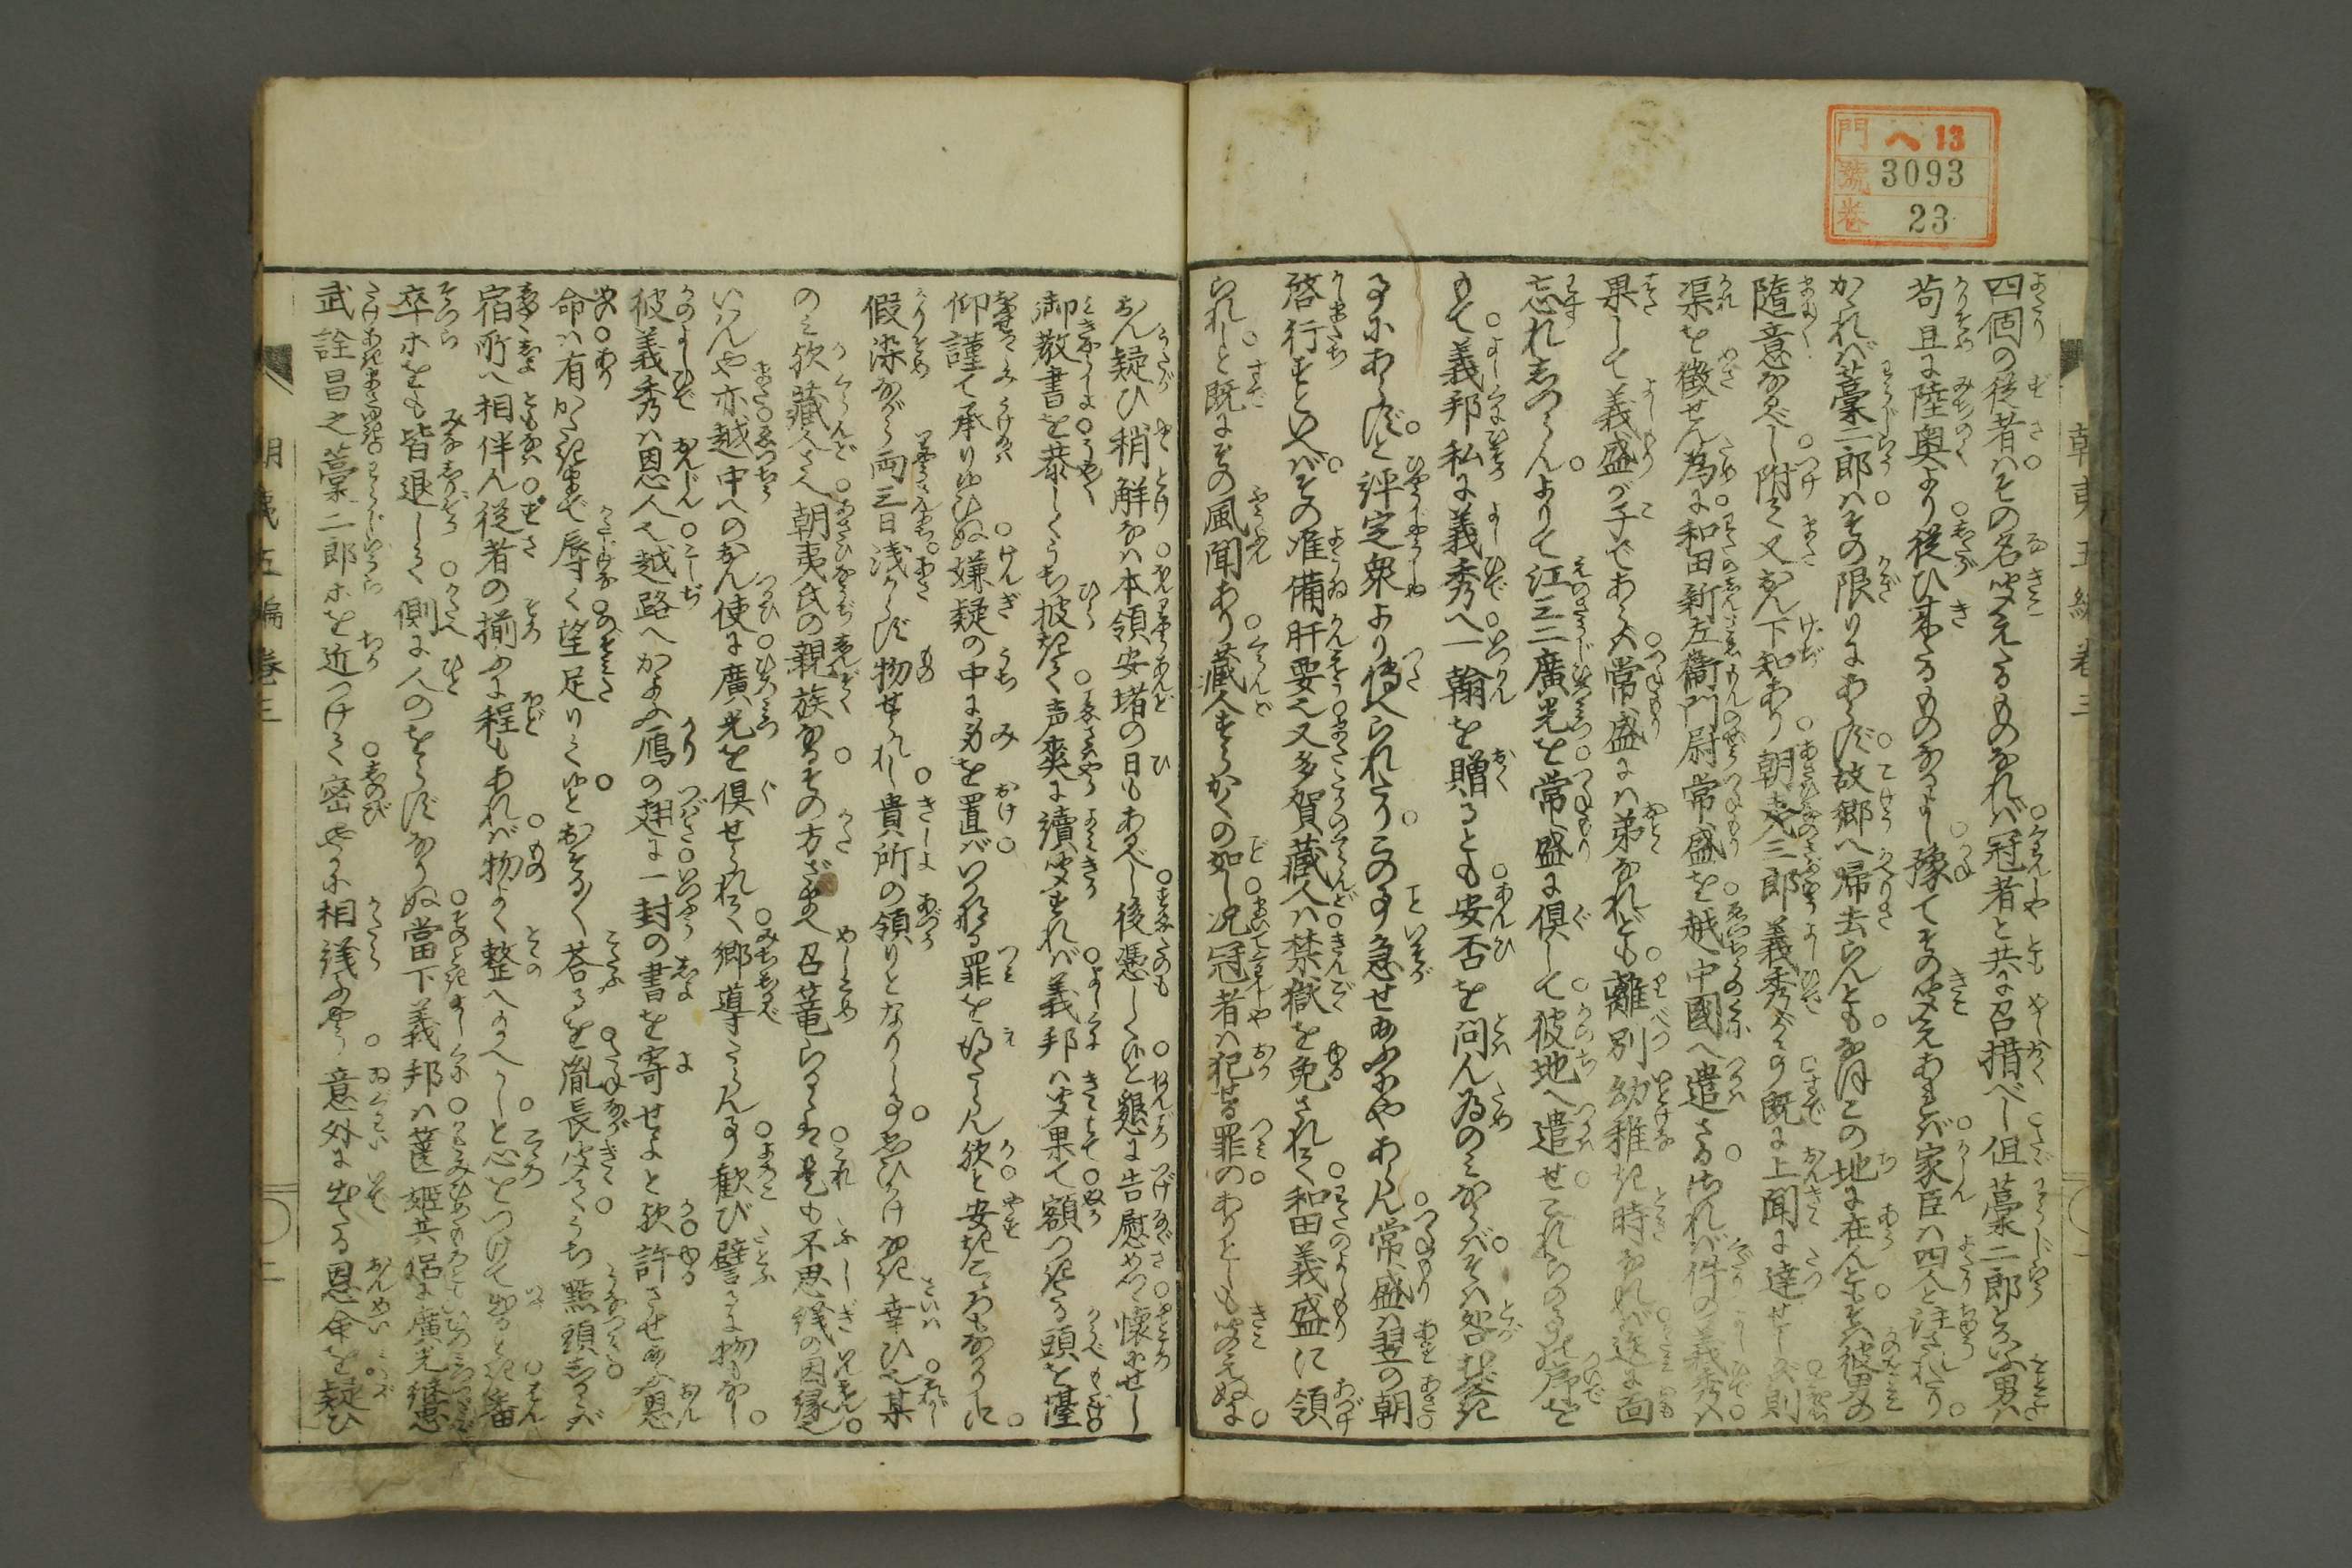 門 へ13
號 3093
巻 23
朝夷五編巻三
四個の従者はその名聞えたるものなれば冠者と共に召措べし但藁二郎とかいふ男は
苟且に陸奥より従ひ来たるものなるよし豫てその聞えあれば家臣は四人と注されたり
かゝれば藁二郎はその限りにあらず故郷へ帰去らんともなほこの地に在んとも彼男の
随意なるべし附て又おん下知あり朝夷三郎義秀が事既に上聞に達せしかば則
渠を徴せん為に和田新左衛門尉常盛を越中國へ遣さる然れば件の義秀は
果して義盛が子であらん常盛には弟なれども離別幼稚き時なれば迭に面
忘れしつらんよりて江三二廣光を常盛に倶して彼地へ遣せこれらの事の序を
もて義邦私に義秀へ一翰を贈るとも安否を問ん為のみならばそは咎むべき
事にあらずと評定衆より傳へられたりこの事急せ給ふにやあらん常盛は翌の朝
啓行すといへばその准備肝要也又多賀蔵人は禁獄を免されて和田義盛に領
られしと既にその風聞あり蔵人すらかくの如し况冠者は犯せる罪のありとしも聞えぬに
おん疑ひ稍解なば本領安堵の日もあるべし後憑しくと懇に告慰めつゝ懐にせし
御教書を恭しくうち披きて声爽に讀聞すれば義邦は聞果て額つきたる頭を擡
仰謹て承りゆひぬ嫌疑の中に身を置ばいかなる罪を得たらん欤と安き心もなかりしに
假染ながら両三日浅からず物せられし貴所の領りとなりし事思ひかけなき幸ひ也某
のみ欤蔵人さへ朝夷氏の親族なるその方ざまへ召篭らるゝは是も不思議の因縁也
いはんや亦越中へのおん使に廣光を倶せられて郷導たらん事歓び譬るに物もなし
彼義秀は恩人也越路へかよふ鴈の翅に一封の書を寄せよと欤許させ給ふ恩
命は有がたきまで辱く望足りてゆとおそる〳〵荅るを胤長聞てうち點頭しからば
宿所へ相伴ん従者の揃ふに程もあれば物よく整へ給へかしと心をつけて出るとき番
卒等をも皆退して側に人のをらずなりぬ當下義邦は蓬姫共侶に廣光継忠
武詮昌之藁二郎等を近つけて密やかに相譚ふやう意外に出たる恩命を疑ひ
朝夷五編巻三